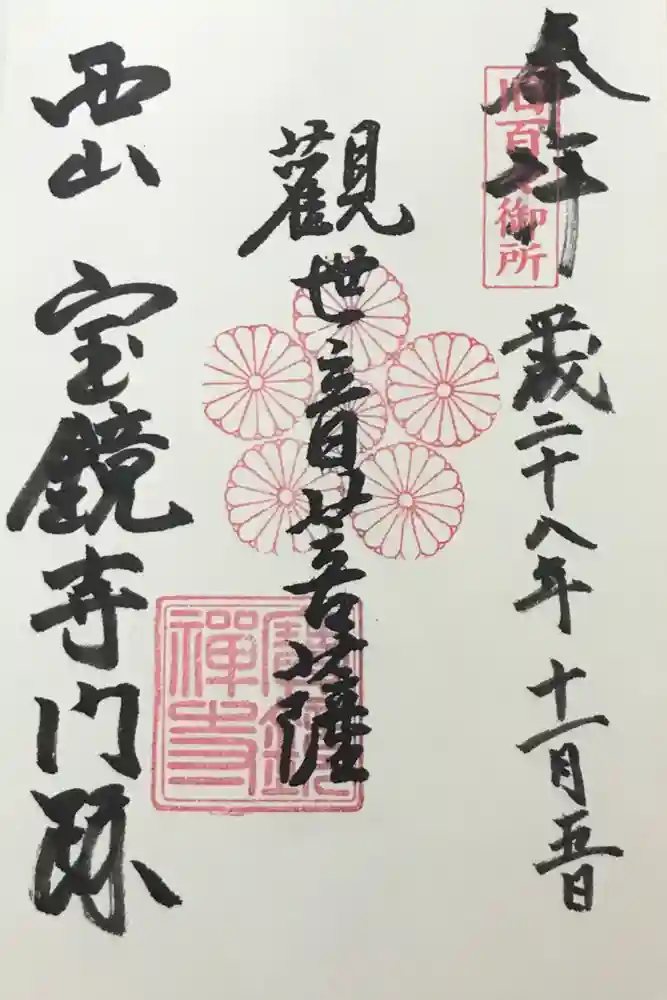 奉拝
旧百々御所
平成二十八年 十一月五日
觀世音菩薩
寶鏡
禪寺
西山 宝鏡寺門跡